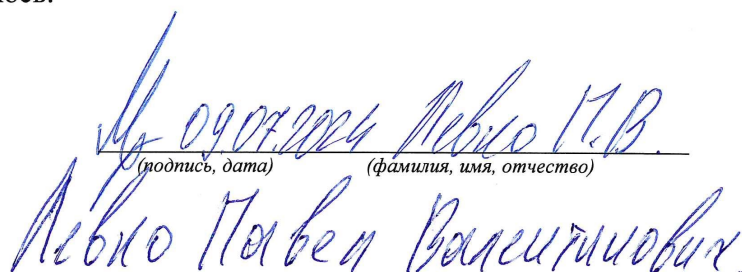 09.07.2024 Левко П.В.
(подпись, дата) (фамилия, имя, отчество)
Левко Павел Валентинович